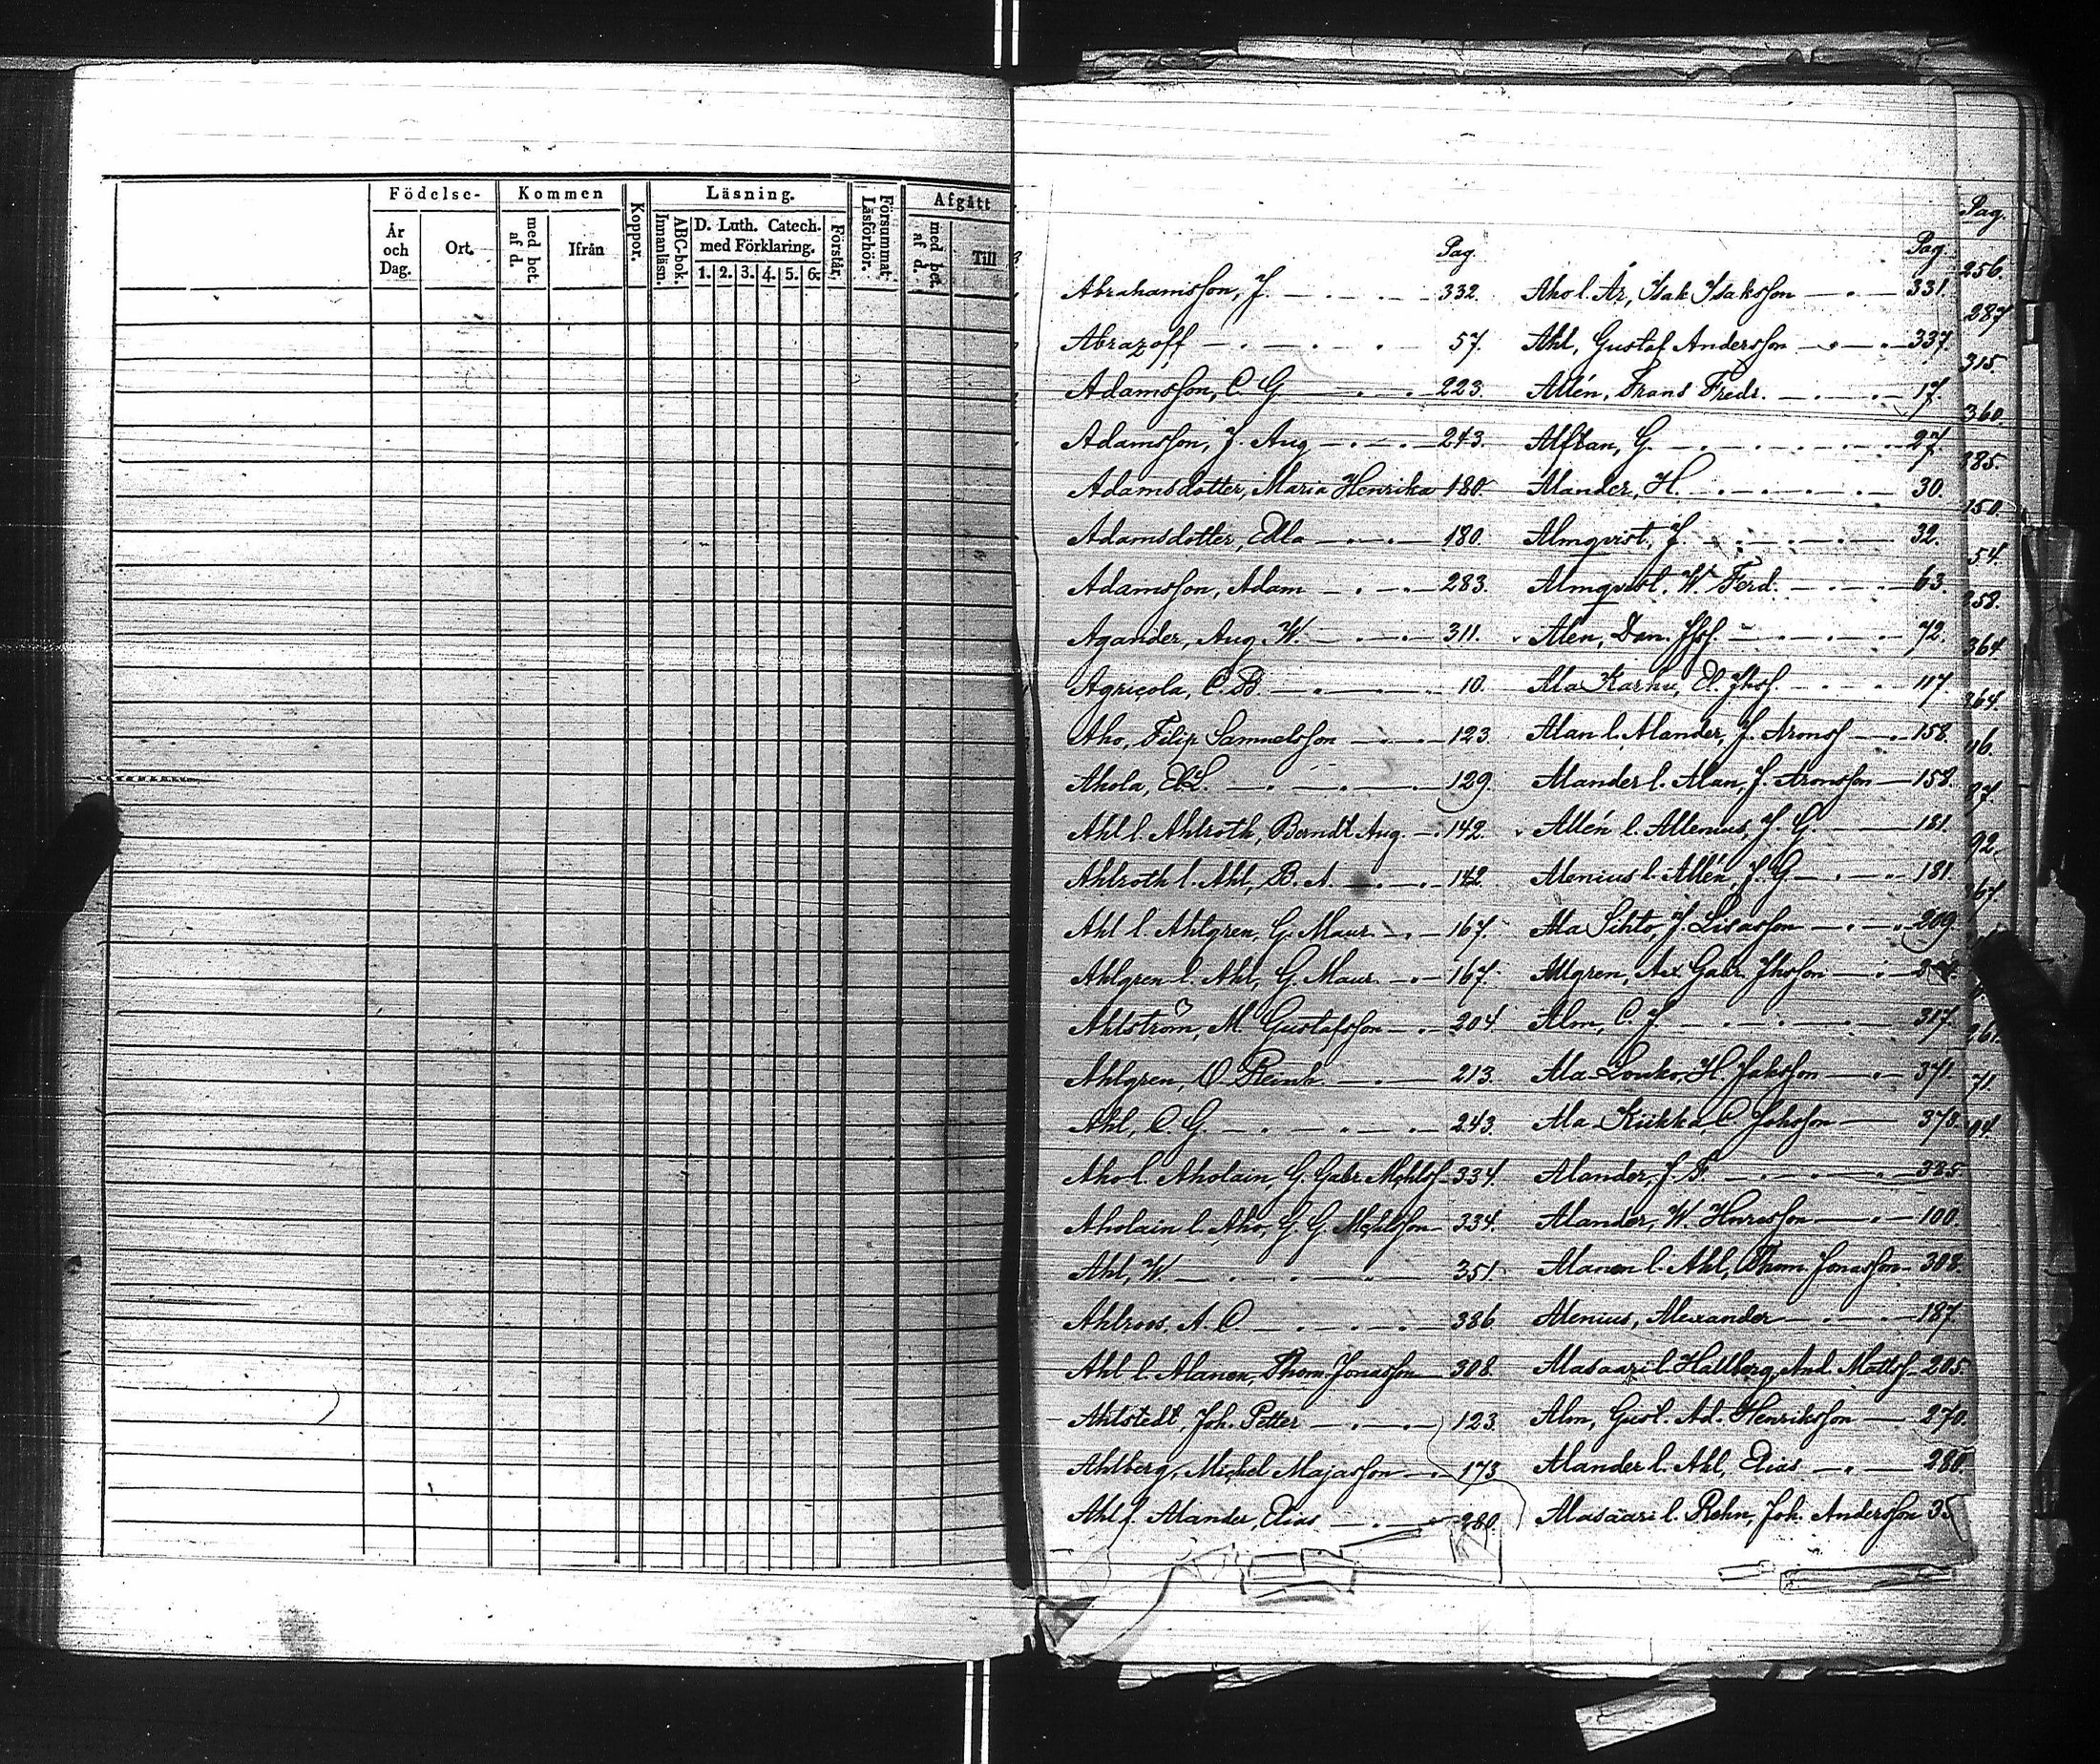 Födelse-
Kommen
Koppor.
Läsning.
Försummat Läsförhör.
Afgått
År och Dag.
Ort.
med bet. af d.
Ifrån
ABC-bok. Innanläsn.
D. Luth. Catech. med Förklaring.
1. 2. 3. 4. 5. 6.
Förstår.
med bet. af d.
Till
Pag.
Abrahamsson, J. 332.
Abrazoff 57.
Adamsson, C. G. 223.
Adamsson, J. Aug 243.
Adamsdotter, Maria Henrika 180.
Adamsdotter, Edla 180.
Adamsson, Adam 283.
Agander, Aug. W. 311.
Agricola, C. B. 10.
Aho, Filip Samuelsson 123.
Ahola, 129.
Ahl l. Ahlroth, Berndt Aug. 142.
Ahlroth l. Ahl, B. A. 142.
Ahl l. Ahlgren, G. Maur. 167.
Ahlgren l. Ahl, G. Maur. 167.
Ahlström, M. Gustafsson 204.
Ahlgren, O. Reinh. 213.
Ahl, C. G. 243.
Aho l. Aholain, G. Gabr. Mchlss. 334.
Aholain l. Aho, G. G. Mchlsson 334.
Ahl, W. 351.
Ahlroos, A. C. 386
Ahl l. Alanen, Thom. Jonasson 308.
Ahlstedt, Joh. Petter 123.
Ahlberg, Michel Majasson 173
Ahl l. Alander, Elias 280.
Pag.
Aho l. Är, Isak Isaksson 331.
Ahl, Gustaf Andersson 337.
Allén, Frans Fredr. 17.
Alftan, G. 27.
Alander, H. 30.
Almqvist, J. 32.
Almqvist, W. Ferd. 63.
Alen, Dan. 72.
Ala Karhu, El. Jhss. 117.
Alan l. Alander, J. Aronss 158.
Alander l. Alan, J. Aronsson 158.
Allén l. Allenius, J. G. 181.
Alenius l. Allén, J. G. 181.
Ala Sihto, J. Lisasson 209.
Allgren, Ax. Gabr. Jhsson
Alm, C. J. 317.
Ala-Louko, H. Jakssson 371.
Ala Kiikka, C. Johsson 378.
Alander, J. F. 385
Alander, W. Hnrsson 100
Alanen l. Ahl, Thom. Jonasson 308.
Alenius, Alexander 187.
Alasaari l. Hallberg, And. Mattss. 205.
Alm, Gust. Ad. Henriksson 270.
Alander l. Ahl, Elias 280.
Alasaari l. Rehn, Joh. Andersson 35
Pag.
256.
287
315.
360.
385.
150.
54.
258.
364
264.
116.
87.
92.
167.
261.
71.